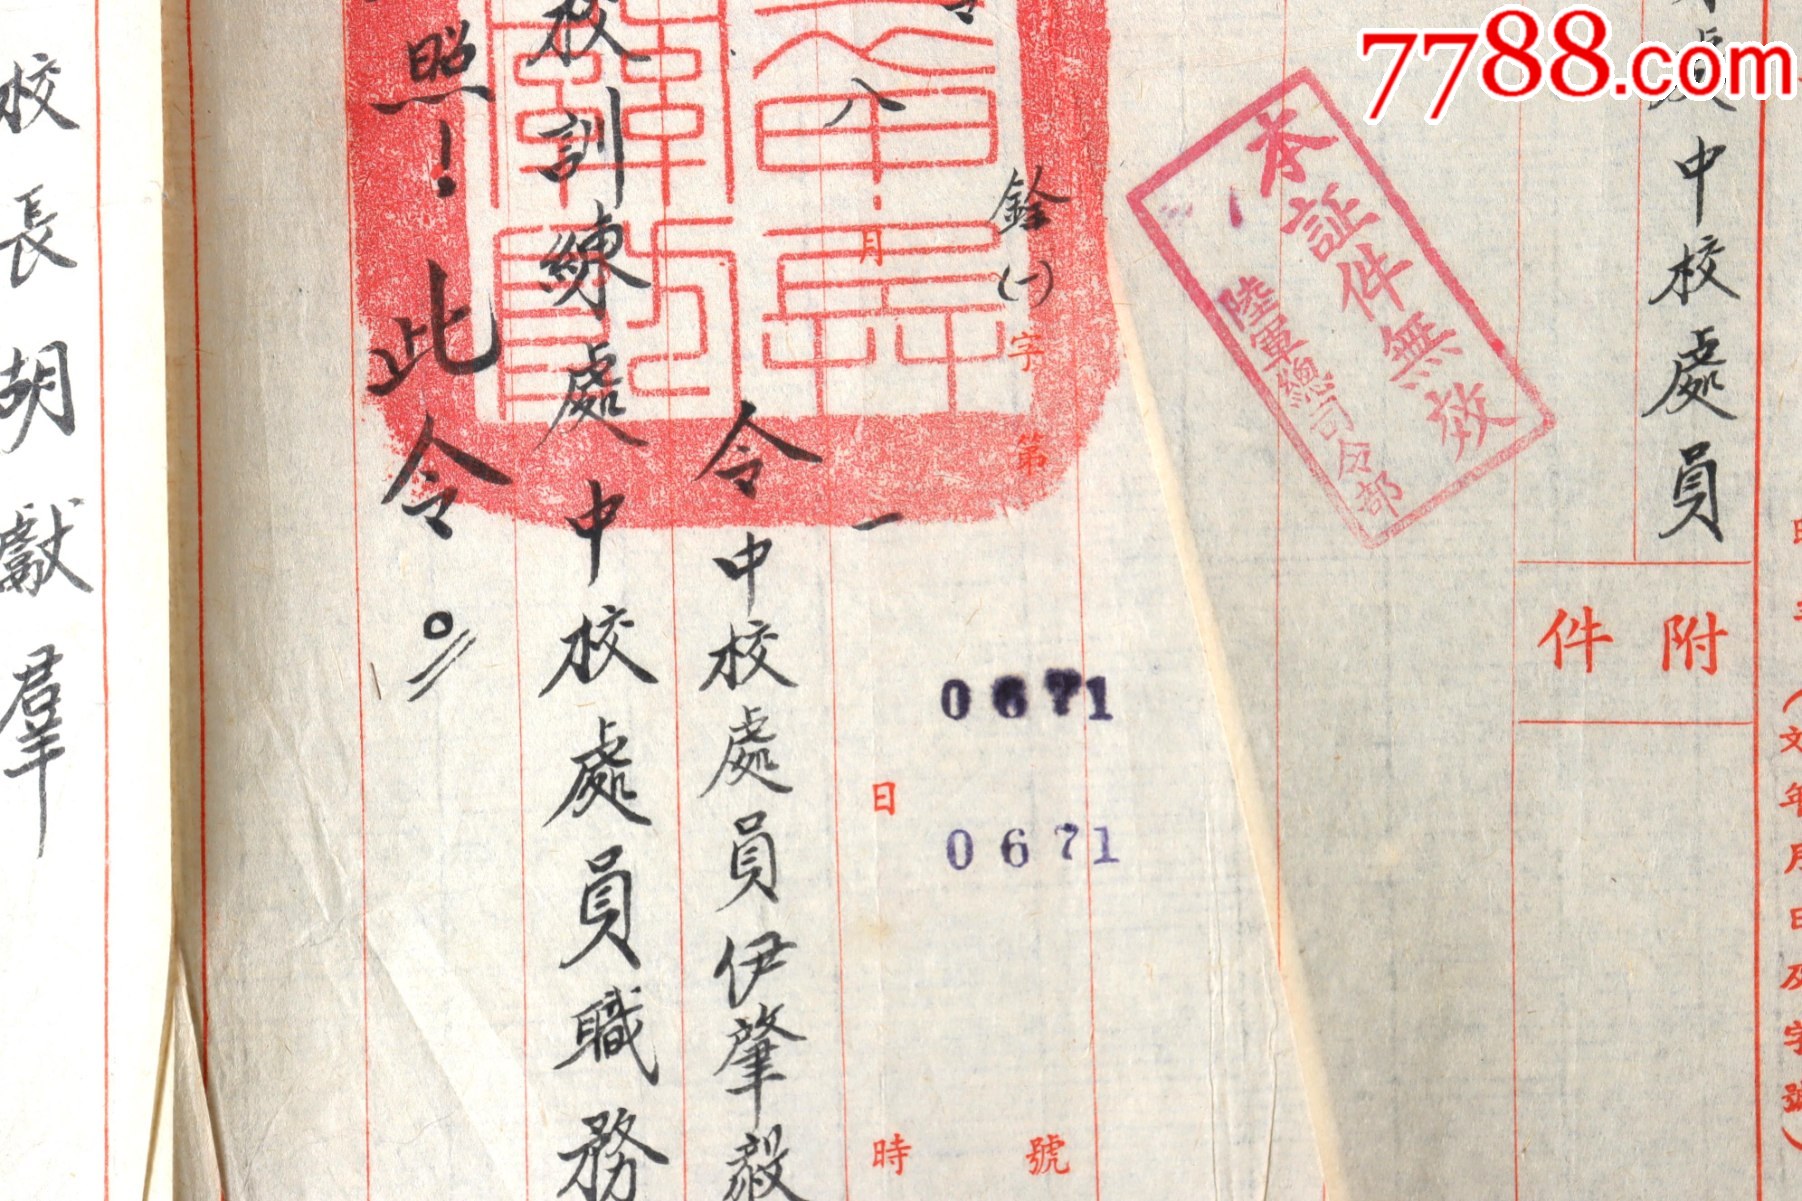 7788.com
處員中校處員
附件
(文年月日及字號)
本証件無效
陸軍總司令部
銓(一)字第
0671
0671
號
八月一日時
令中校處員伊肇毅
校訓練處中校處員職務
照!此令。
校長胡獻羣